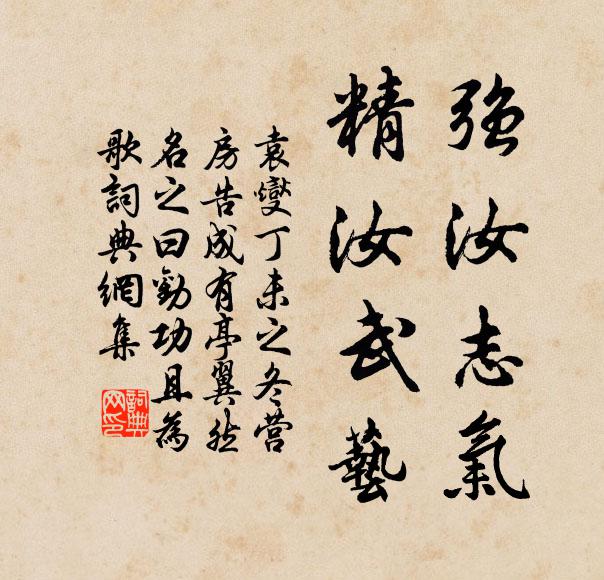 強汝志氣
精汝武藝
袁燮丁未之冬營
房告成有亭翼然
名之曰勸功且為
歌詞典網集
詞典
网印